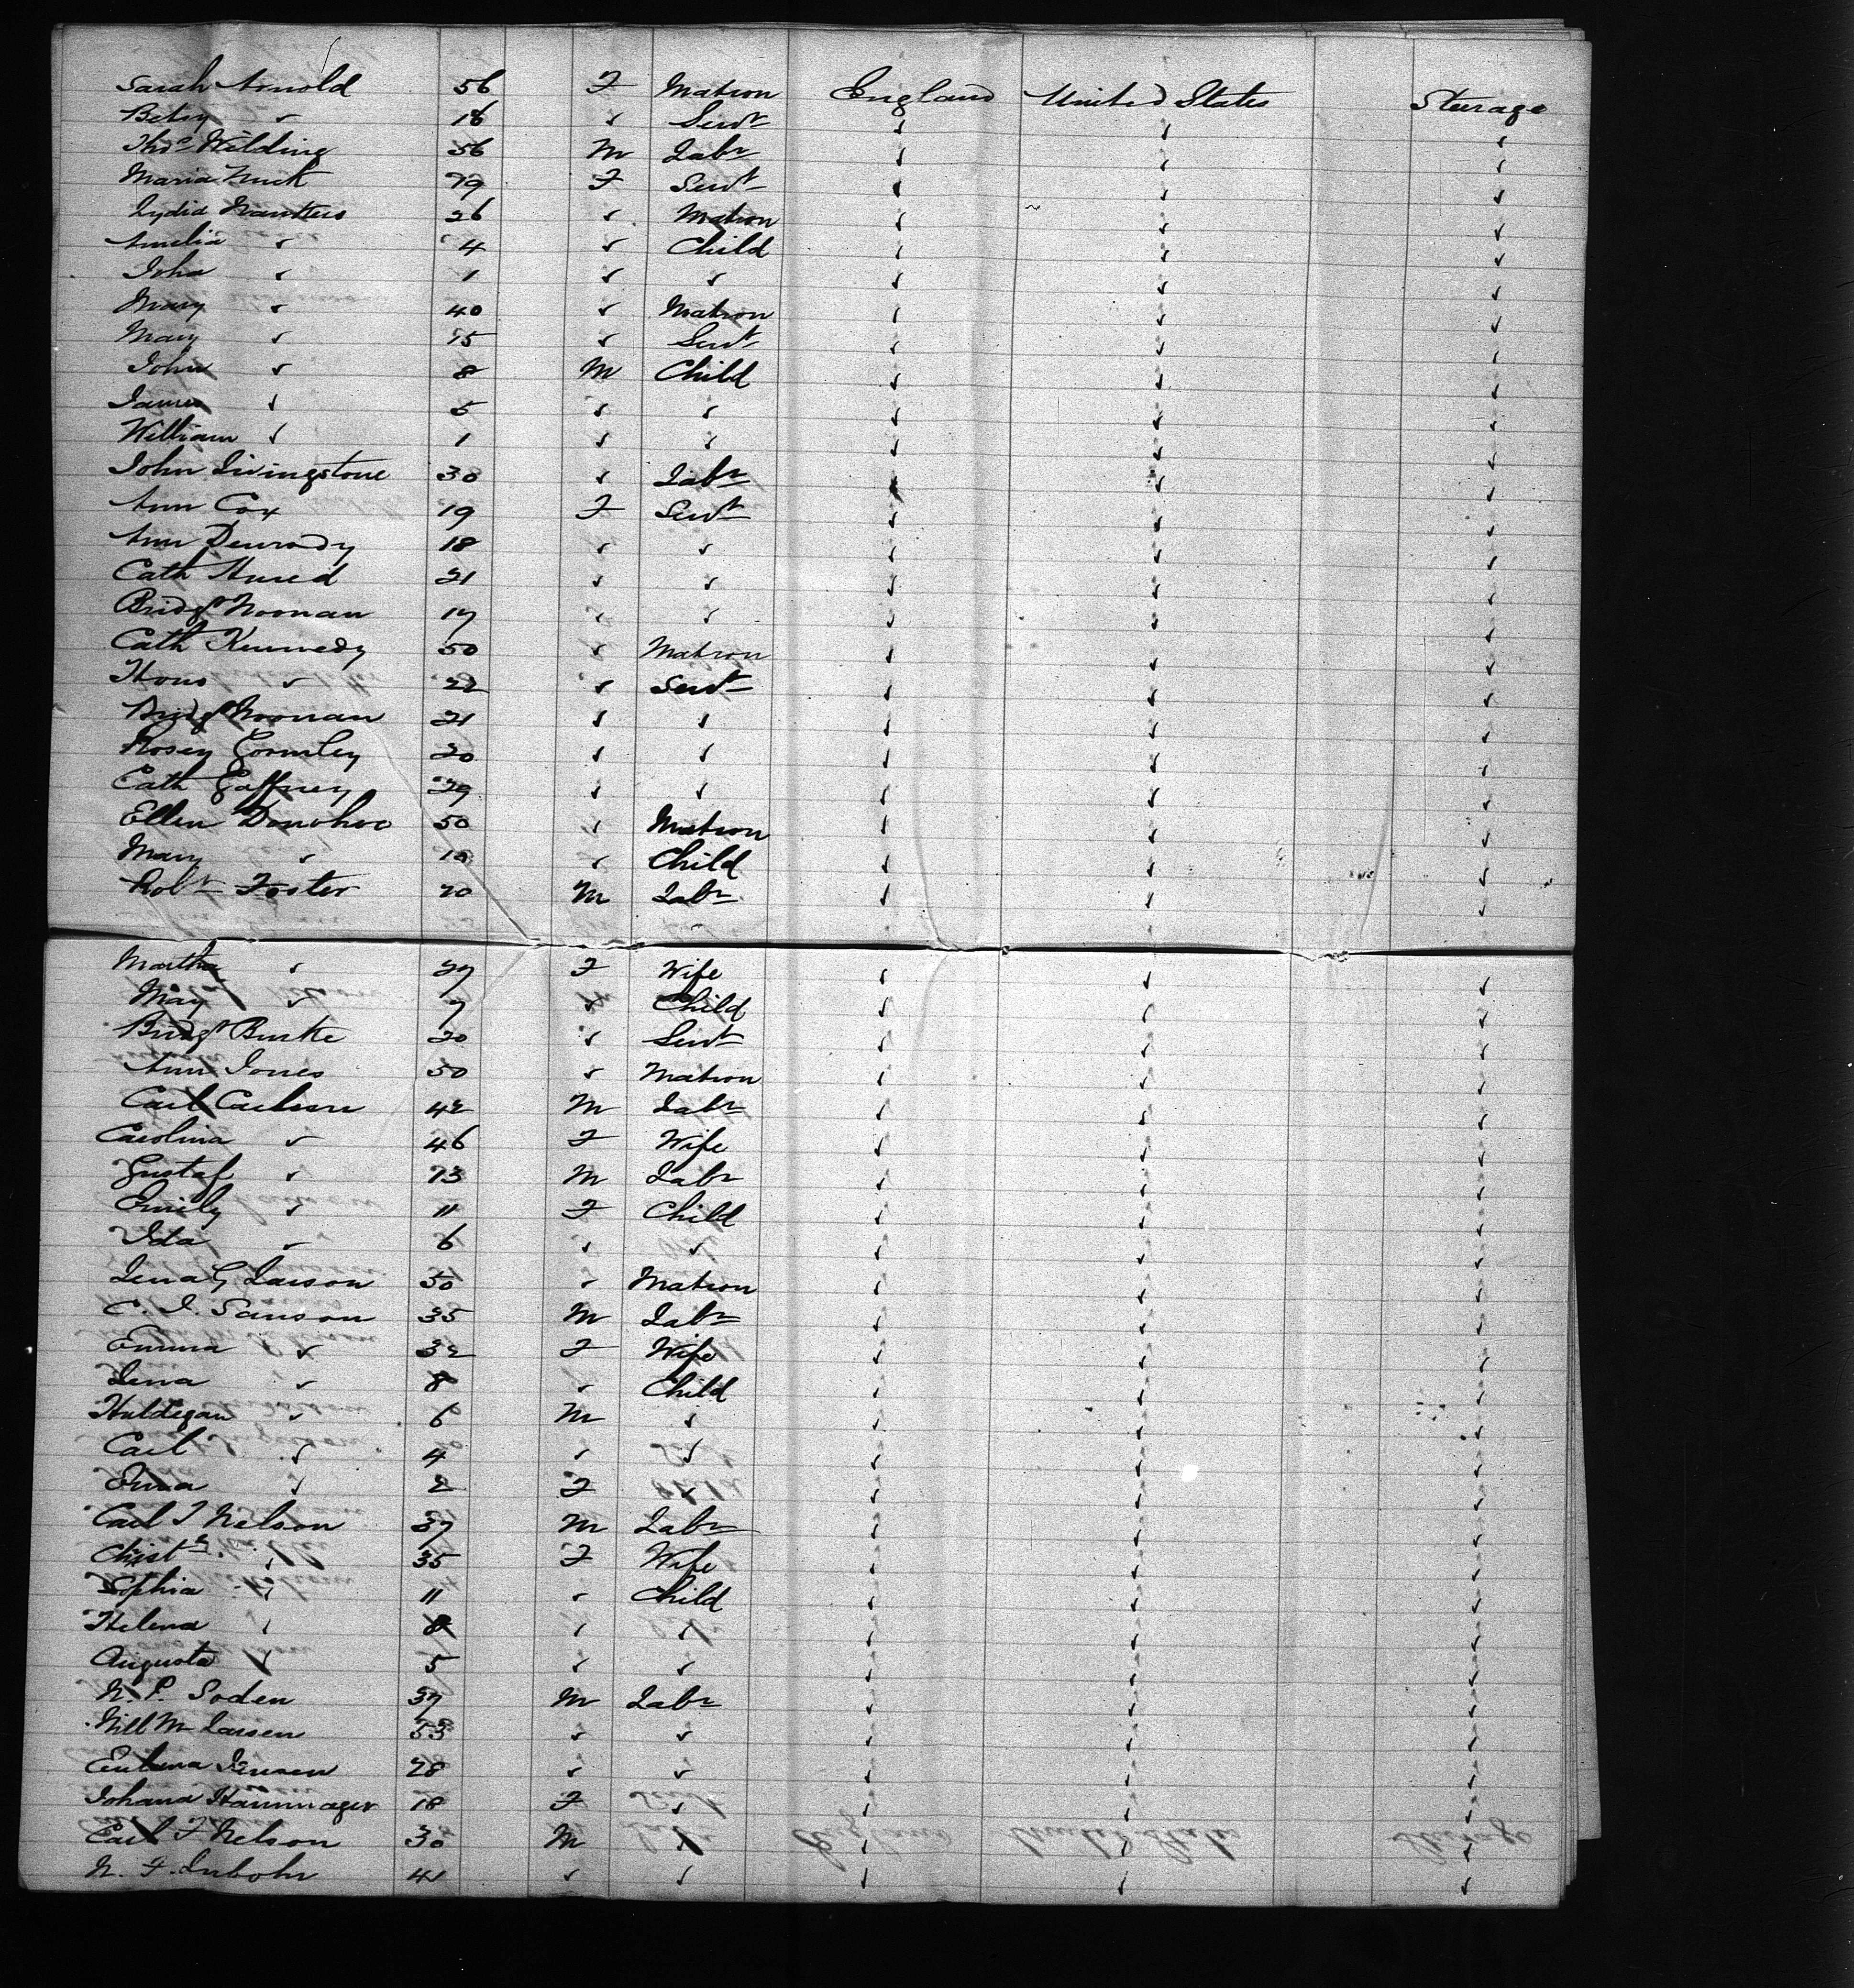 Sarah Arnold 56 F Matron England United States Steerage
Betsy " 16 " Servt " " "
Thos Wilding 56 M Labr " " "
Maria 19 F Servt " " "
Lydia 26 " Matron " " "
Amelia " 4 " Child " " "
John " 1 " " " " "
Mary " 40 " Matron " " "
Mary " 15 " Servt " " "
John " 8 M Child " " "
James " 5 " " " " "
William " 1 " " " " "
John Livingstone 30 " Labr " " "
Ann Cox 19 F Servt " " "
Ann 18 " " " " "
Cath 21 " " " " "
Bridgt Noonan 17 " " " " "
Cath Kennedy 50 " Matron " " "
Hono " 22 " Servt " " "
Bridgt Noonan 21 " " " " "
Rosey Gormley 20 " " " " "
Cath Gaffney 29 " " " " "
Ellen Donohoe 50 " Matron " " "
Mary " 10 " Child " " "
Robt Foster 20 M Labr " " "
Martha " 27 F Wife " " "
May " 7 " Child " " "
Bridgt Burke 20 " Servt " " "
Ann Jones 30 " Matron " " "
Carl Carlson 42 M Labr " " "
Carolina " 46 F Wife " " "
Gustaf " 13 M Labr " " "
Emily " 11 F Child " " "
Ida " 6 " " " " "
Lena G Larson 50 " Matron " " "
C. J. Sanson 35 M Labr " " "
Emma " 32 F Wife " " "
Lena " 8 " Child " " "
Huldegan " 6 M " " " "
Carl " 4 " " " " "
Erna " 2 F " " " "
Carl J Nelson 37 M Labr " " "
Christa " 35 F Wife " " "
Sophia " 11 " Child " " "
Helena " 8 " " " " "
Augusta " 5 " " " " "
N. P. Soden 37 M Labr " " "
Nill M Larsen 53 " " " " "
Jensen 28 " " " " "
Johana Hammager 18 F " " " "
Carl F Nelson 30 M " " " "
N. F. 41 " " " " "